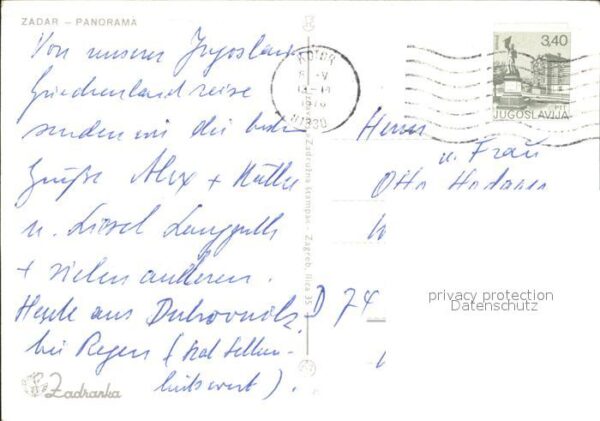 ZADAR – PANORAMA
Von unserer Jugoslawien
Griechenlandreise
senden wir die besten
Grüße Alex + Käthe
u. Liesel Langguth
+ vielen anderen.
Heute aus Dubrovnik
bei Regen (hat Selten-
heitswert).
Zadranka
Zadružna štampa, Zagreb, Ilica 35
3,40
JUGOSLAVIJA
Herrn
u. Frau
Otto
D 74
privacy protection
Datenschutz